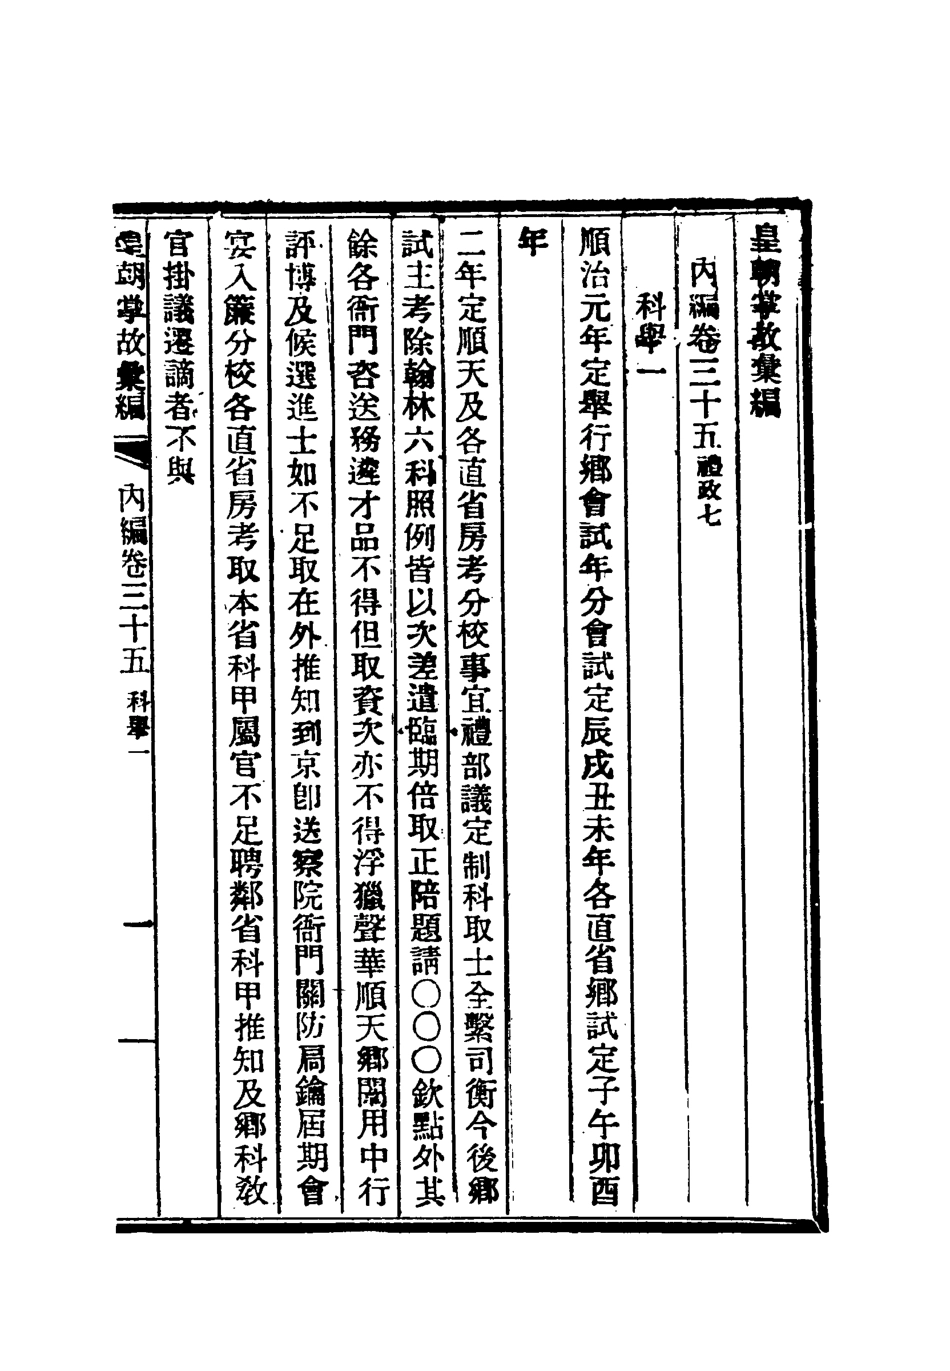 皇朝掌故彙編
內編卷三十五禮政七
科舉一
順治元年定舉行鄉會試年分會試定辰戌丑未年各直省鄉試定子午卯酉
年
二年定順天及各直省房考分校事宜禮部議定制科取士全繫司衡今後鄉
試主考除翰林六科照例皆以次差遣臨期倍取正陪題請〇〇〇欽點外其
餘各衙門咨送務遴才品不得但取資次亦不得浮獵聲華順天鄉闈用中行
評博及候選進士如不足取在外推知到京卽送察院衙門關防局鑰屆期會
宴入簾分校各直省房考取本省科甲屬官不足聘鄰省科甲推知及鄉科敎
官掛議遷謫者不與
皇朝掌故彙編 內編卷三十五 科舉一 一